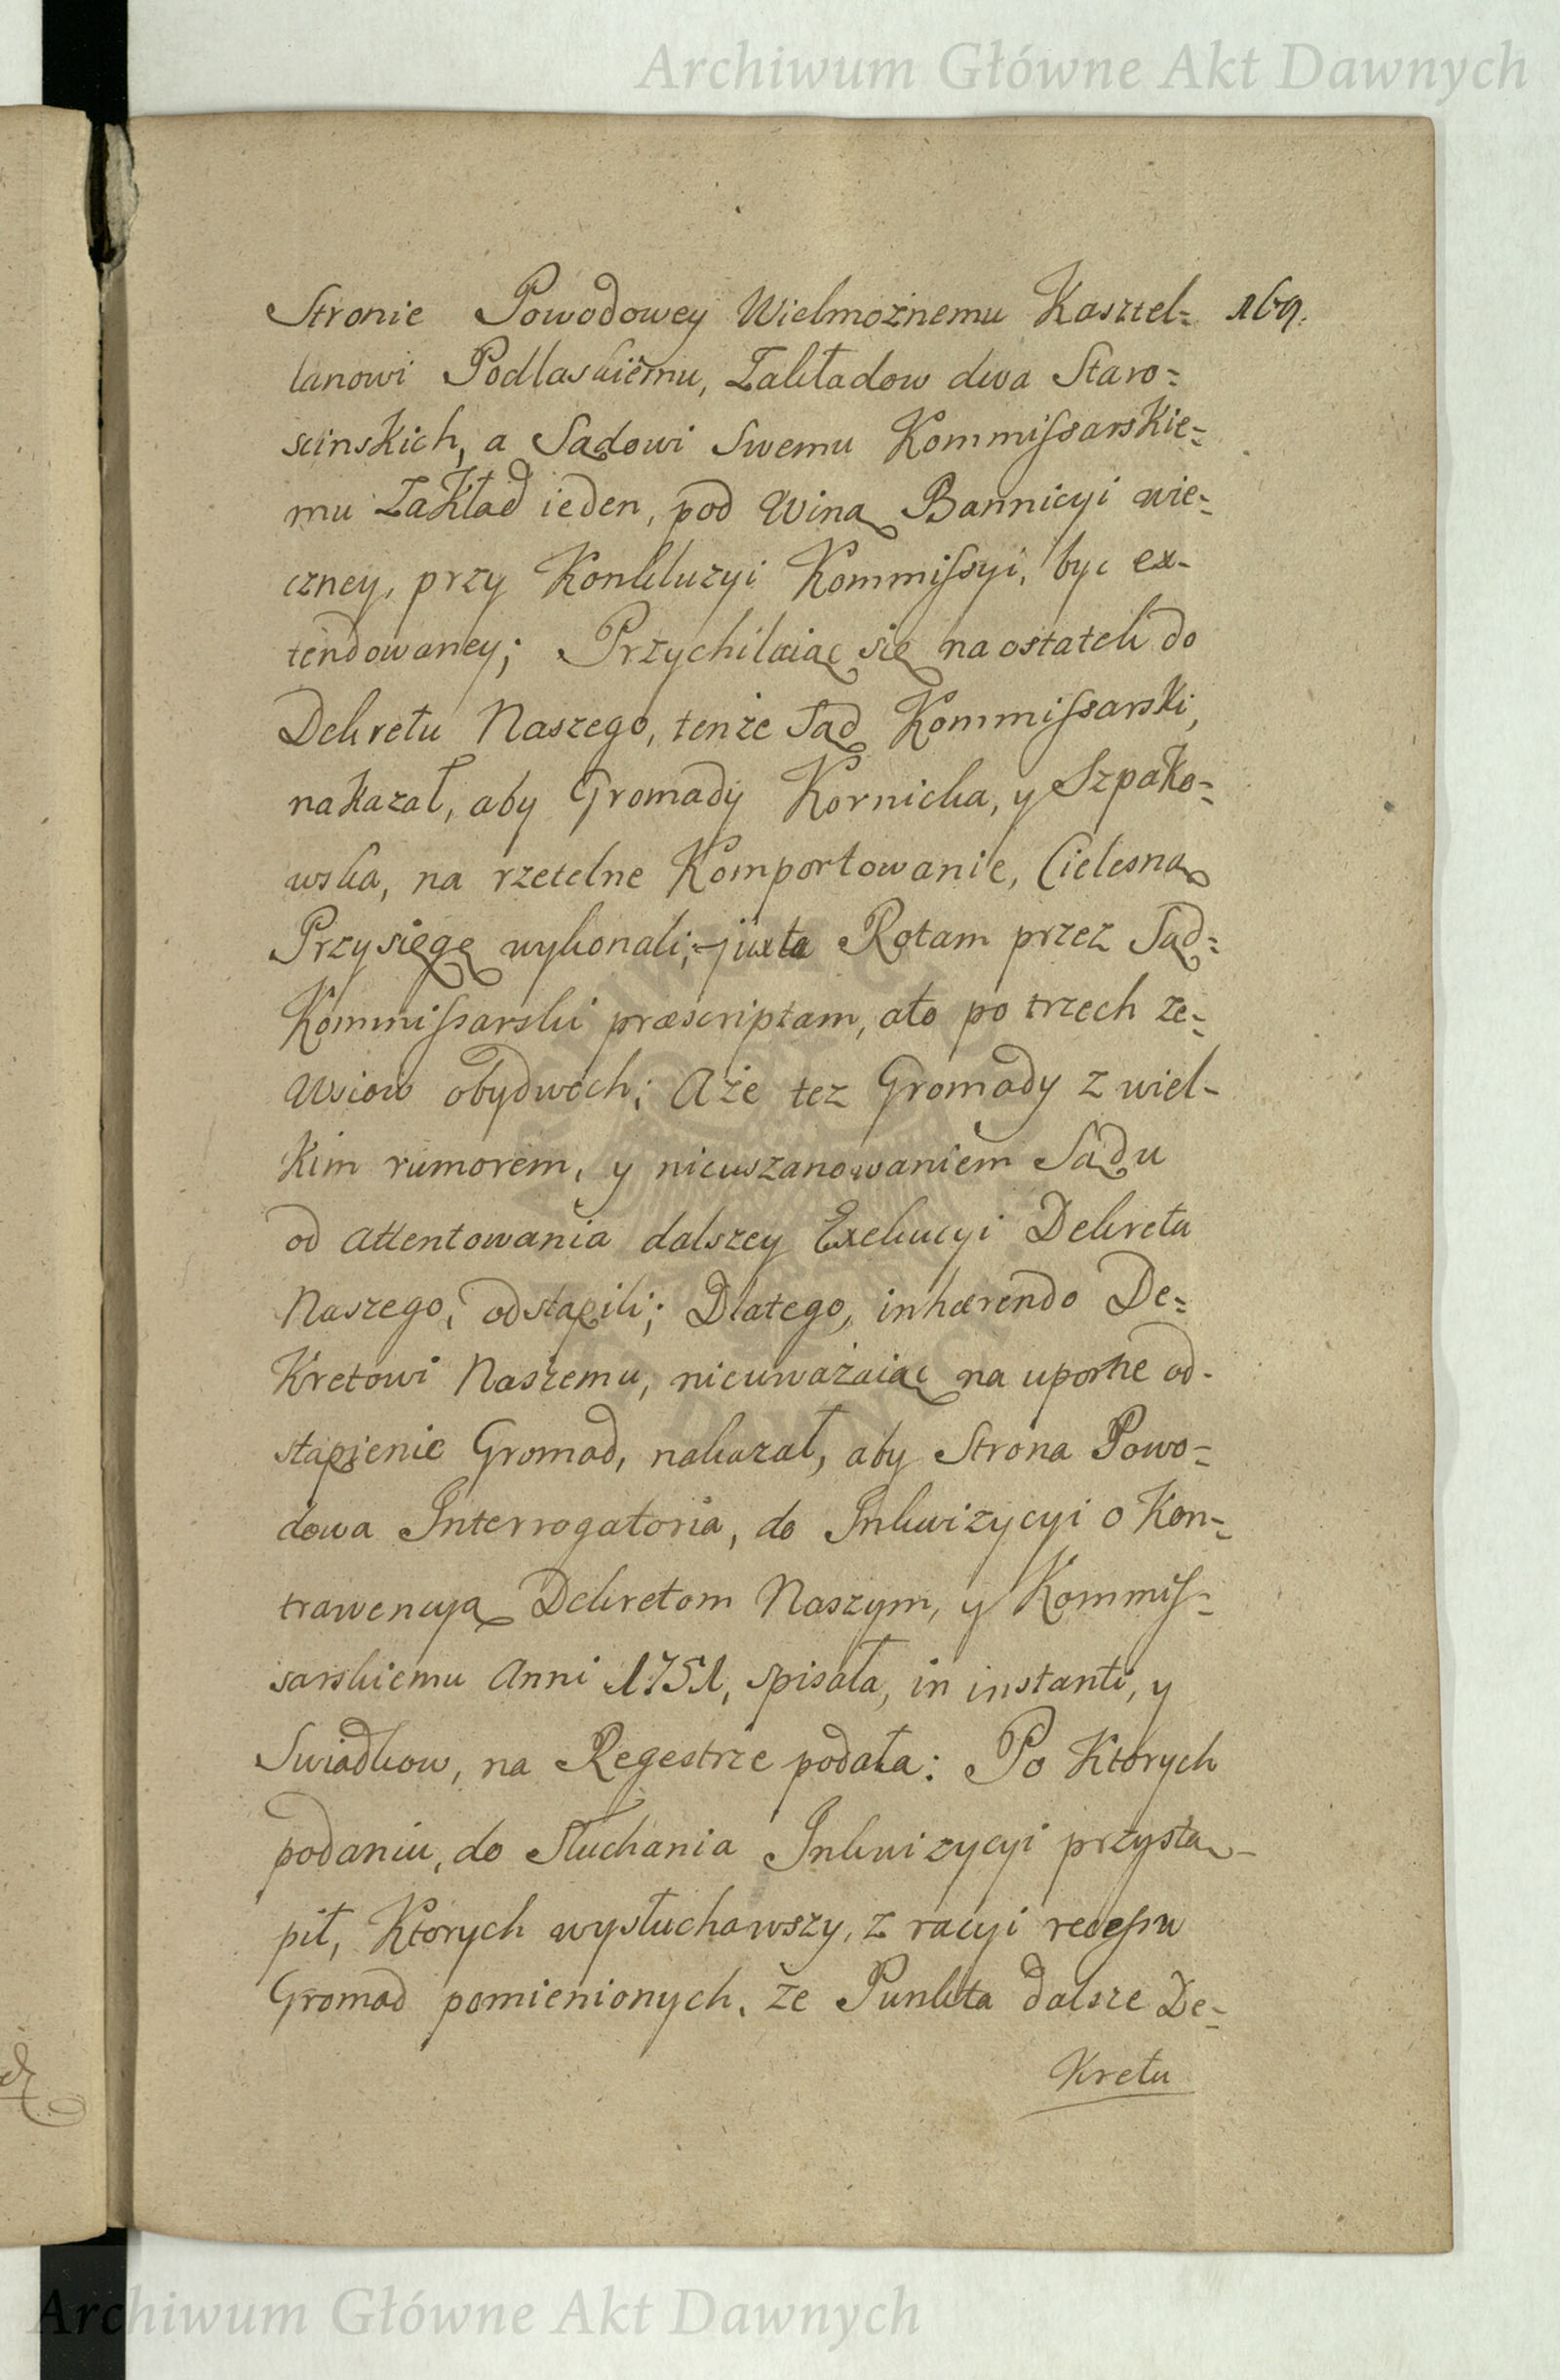 Archiwum Główne Akt Dawnych
Stronie Powodowey Wielmożnemu Kasztel= 169.
lanowi Podlaskiemu, Zakładow dwa Staro=
scinskich, a Sądowi Swemu Kommissarskie=
mu Zakład ieden, pod Winą Bannicyi wie=
czney, przy Konkluzyi Kommissyi, byc ex-
tendowaney; Przychilaiąc się na ostatek do
Dekretu Naszego, tenże Sąd Kommissarski,
nakazał, aby Gromady Kornicka, y Szpako=
wska, na rzetelne Komportowanie, Cielesną
Przysięgę wykonali; juxta Rotam przez Sąd=
Kommissarski præscriptam, ato po trzech ze=
Wsiow obydwoch; Aże tez Gromady z wiel-
kim rumorem, y nieuszanowaniem Sądu
od attentowania dalszey Exekucyi Dekretu
Naszego, odstąpili; Dlatego, inhærendo De=
kretowi Naszemu, nieuważaiąc na uporne od-
stąpienie Gromad, nakazał, aby Strona Powo=
dowa Interrogatoria, do Inkwizycyi o Kon=
trawencyą Dekretom Naszym, y Kommis=
sarskiemu Anni 1751, spisała, in instanti, y
Swiadkow, na Regestrze podała: Po Ktorych
podaniu, do Słuchania Inkwizycyi przystą-
pił, Ktorych wysłuchawszy, z racyi recessu
Gromad pomienionych, że Punkta dalsze De=
kretu
Archiwum Główne Akt Dawnych